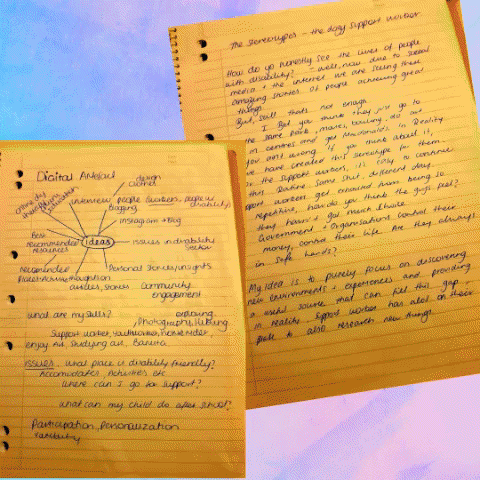 The Stereotypes - the dogy support worker
How do go honestly see the lives of people
with disability? - well, now due to social
media + the internet we are seeing these
amazing stories of people achieving great
things.
But still that's not enough
I Bet you think they just go to
the same park, movies, bowling, so out
in centres and get McDonald's in Reality
you aint wrong. If you think about it,
we have created this stereotype for them.
So the support workers, its easy to continue
this. Routine. Same shit, different day.
support workers get around them being so
repetitive, how do you think the guys feel?
they hours + got much choice
Government + Organisations control their
money, control their life. Are they always
in safe hands?
My idea is to purely focus on discovering
new environments + experiences and providing
a useful source that can fill this gap.
in reality support worker has also on their
part to also research new things.
Digital Artefact
design
interview
people Workers, people w
disability
blogging
Instagram + Blog
Best
Recommended
resources
ideas
issues in disability
sector
Recommended
Places
Personal Stories/insights
articles, stories
Community
engagement
What are my skills?
exploring
, Photography, Writing
Support worker, youthworker,
enjoy Art, Studying art,
issues. What place is disability friendly?
Accomodates Activities etc
where can I go for support?
what can my child do after school?
Participation, Personalization